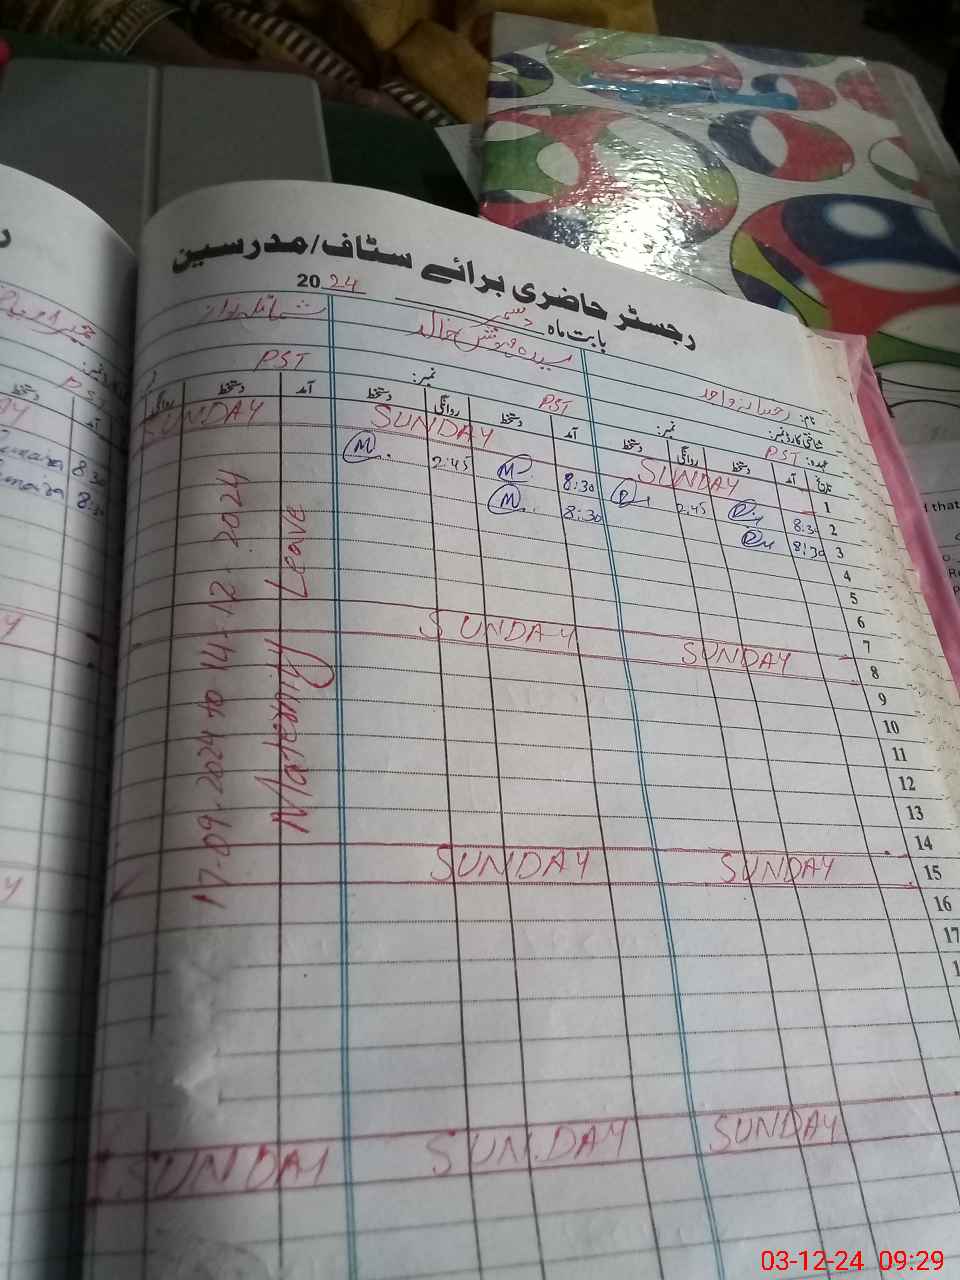 رجسٹر حاضری برائے سٹاف/مدرسین
بابت ماہ دسمبر 2024
نام: رخسانہ واحد
سیدہ مہوش خالد
شناختی کارڈ نمبر:
نمبر:
نمبر:
عہدہ: PST
PST
PST
تاریخ آمد دستخط روانگی دستخط
آمد دستخط روانگی دستخط
آمد دستخط روانگی
1 SUNDAY SUNDAY SUNDAY
2 8:30 2:45 8:30 M. 2:45 M.
3 8:30 8:30 M.
4
5
6
7
8 SUNDAY SUNDAY
9
10
11
12
13
14
15 SUNDAY SUNDAY
16
17
SUNDAY SUNDAY SUNDAY
17-09-2024 to 14-12-2024
Maternity Leave
8:30
8:30
03-12-24 09:29